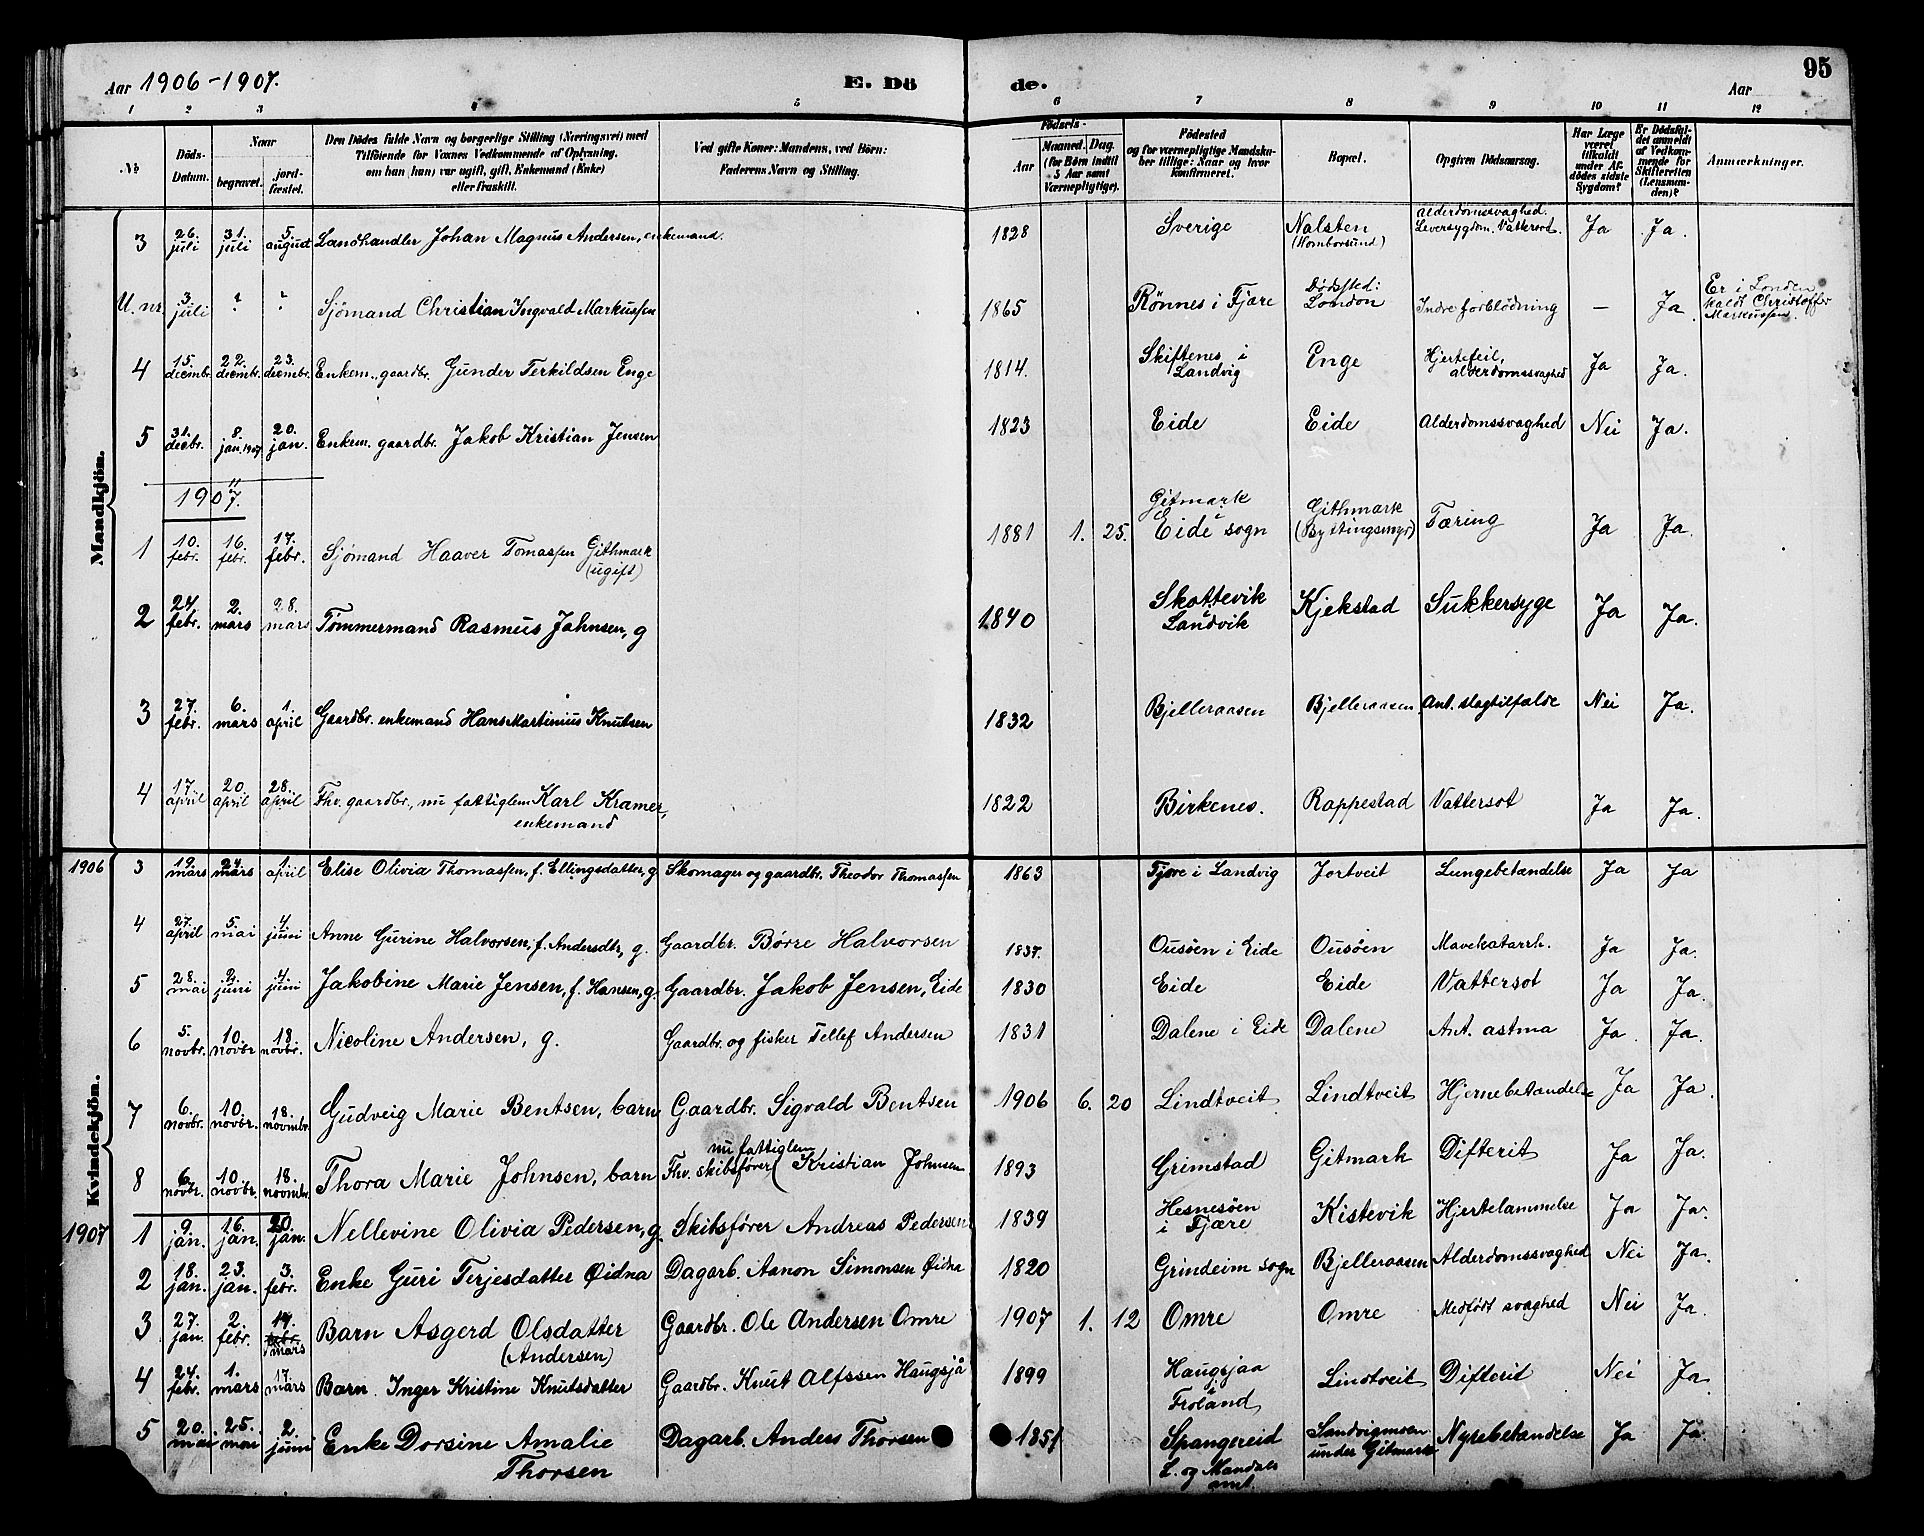 Aar 1906-1907. E. Dö de. Aar 95
1 2 3 4 5 6 7 8 9 10 11 12
No Döds-Datum. Naar begravet. jordfæstet. Den Dödes fulde Navn og borgerlige Stilling (Næringsvei) med Tilföiende for Voxnes Vedkommende af Oplysning, om han (hun) var ugift, gift, Enkemand (Enke) eller fraskilt. Ved gifte Koner: Mandens, ved Börn: Faderens Navn og Stilling. Födsels- Aar Maaned. Dag. (for Börn indtil 5 Aar samt Værnepligtige). Födested og for værnepligtige Mandskaber tillige: Naar og hvor konfirmeret. Bopæl. Opgiven Dödsaarsag. Har Læge været tilkaldt under Afdödes sidste Sygdom? Er Dödsfaldet anmeldt af Vedkommende for Skifteretten (Lensmanden)? Anmærkninger.
Mandkjön.
3 26. juli 31. juli 5. august Landhandler Johan Magnus Andersen, enkemand. 1828 Sverige Nalsten (Homborsund) Alderdomssvaghed. Leversygdom. Vattersot. Ja Ja.
U. nr. 3. juli ? ? Sjömand Christian Ingvald Markussen 1865 Rönnes i Fjære Dødsted: London Indre forblödning — Ja Er i London kaldt Christoffer Markussen.
4 15. decmbr. 22. decmbr. 23. decmbr. Enkem., gaardbr. Gunder Terkildsen Enge 1814. Skiftenes i Landvig Enge Hjertefeil, alderdomssvaghed Ja Ja.
5 31. decbr. 8. jan. 1907. 20. jan. Enkem. gaardbr. Jakob Kristian Jensen 1823 Eide Eide Alderdomssvaghed Nei Ja.
1907.
1 10. febr. 16. febr. 17. febr. Sjömand Haaver Tomassen Githmark (ugift) 1881 1. 25. Gitmark i Eide sogn Githmark (Byttingsmyr) Tæring Ja Ja.
2 24. febr. 2. mars 28. mars Tömmermand Rasmus Johnsen, g 1840 Skottevik i Landvik Kjekstad Sukkersyge Ja Ja.
3 27. febr. 6. mars 1. april Gaardbr. enkemand Hans Martinius Knutsen 1832 Bjelleraasen Bjelleraasen Ant. slagtilfælde Nei Ja.
4 17. april 20. april 28. april Fhv. gaardbr., nu fattiglem Karl Kramer, enkemand 1822 Birkenes. Rappestad Vattersot Ja Ja.
Kvindekjön.
1906 3 19. mars 24. mars 1. april Elise Olivia Thomassen, f. Ellingsdatter, g Skomager og gaardbr. Theodor Thomassen 1863 Fjære i Landvig Jortveit Lungebetændelse Ja Ja
4 27. april 5. mai 4. juni Anne Gurine Halvorsen, f. Andersdtr, g. Gaardbr. Börre Halvorsen 1837. Ousöen i Eide Ousöen Mavekatarrh. Ja Ja.
5 28. mai 2. juni 4. juni Jakobine Marie Jensen, f. Hansen, g. Gaardbr. Jakob Jensen, Eide 1830 Eide Eide Vattersot Ja Ja.
6 5. novbr. 10. novbr 18. novbr. Nicoline Andersen, g. Gaardbr. og fisker Tellef Andersen 1831 Dalene i Eide Dalene Ant. astma Ja. Ja.
7 6. novbr. 10. novbr. 18. novmbr. Gudveig Marie Bentsen, barn Gaardbr. Sigvald Bentsen 1906 6. 20 Lindtveit Lindtveit Hjernebetændelse Ja Ja.
8 6. novbr. 10. novbr. 18. novmbr. Thora Marie Johnsen, barn Fhv. skibsfører, nu fattiglem Kristian Johnsen 1893 Grimstad Gitmark Difterit Ja Ja.
1907 1 9. jan. 16. jan. 20. jan. Nellevine Olivia Pedersen, g. Skibsfører Andreas Pedersen 1839 Hesnesöen i Fjære Kistevik Hjertelammelse Ja Ja.
2 18. jan. 23. jan. 3. febr. Enke Guri Terjesdatter Øidna Dagarb. Aanon Simonsen Øidna 1820 Grindeim sogn Bjelleraasen Alderdomssvaghed Nei Ja.
3 27. jan. 2. febr. 17. mars Barn Asgerd Olsdatter (Andersen) Gaardbr. Ole Andersen Omre 1907 1. 12 Omre Omre Medfödt svaghed Nei Ja.
4 24. febr. 1. mars 17. mars Barn. Inger Kristine Knutsdatter Gaardbr. Knut Alfssen Haugsjå 1899 Haugsjaa i Froland Lindtveit Difterit Nei Ja.
5 20. mai 25. mai 2. juni Enke Dorsine Amalie Thorsen Dagarb. Anders Thorsen 1851 Spangereid L. og Mandals amt. Sandvigmoen under Gitmark Nyrebetændelse Ja Ja.